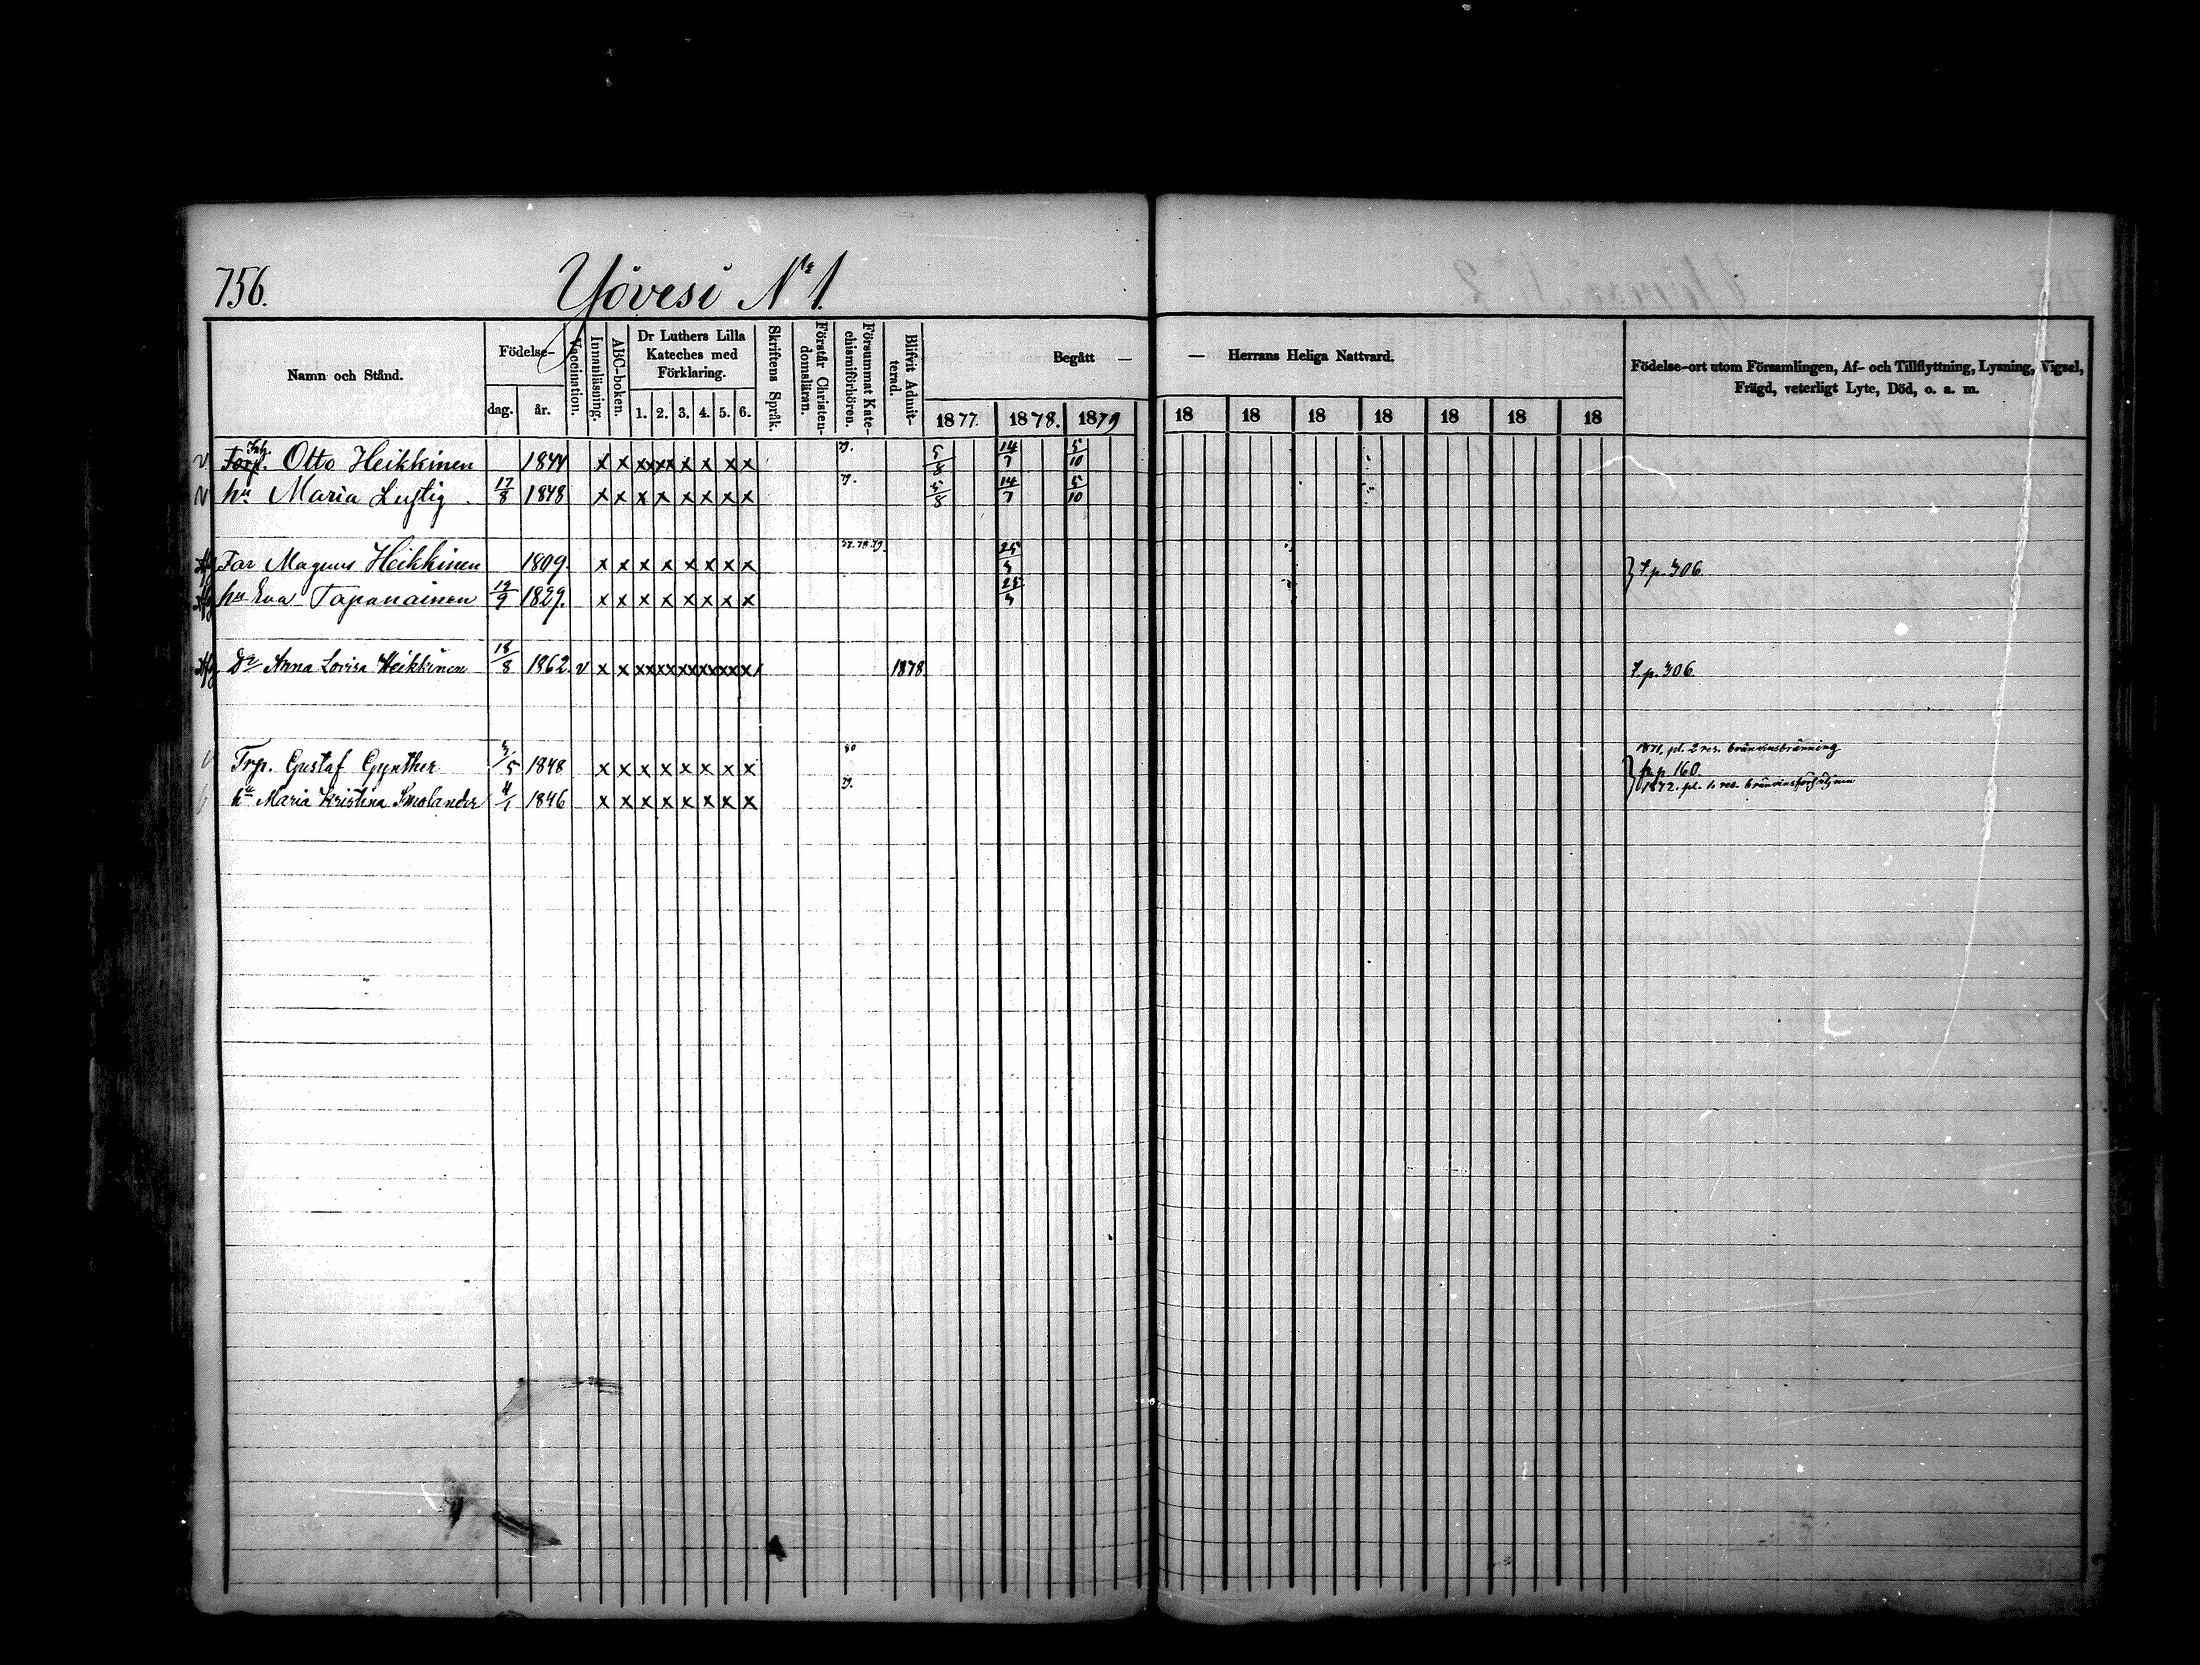 756.
Yövesi No 1.
Namn och Stånd.
Födelse-
dag.
år.
Vaccination.
Innanläsning.
ABC-boken.
Dr Luthers Lilla Kateches med Förklaring.
1. 2. 3. 4. 5. 6.
Skriftens Språk.
Förstår Christendomsläran.
Försummat Katechismiförhören.
Blifvit Admitterad.
Begått — — Herrans Heliga Nattvard.
1877. 1878. 1879 18 18 18 18 18 18 18
Födelse-ort utom Församlingen, Af- och Tillflyttning, Lysning, Vigsel,
Frägd, veterligt Lyte, Död, o. a. m.
Otto Heikkinen 1844 x x x x x x x x x x 79. 5/8 14/7 5/10
hu Maria Lustig 17/8 1848 x x x x x x x x 79. 5/8 14/7 5/10
Far Magnus Heikkinen 1809. x x x x x x x x 77. 78. 79. 25/3
hu Eva Tapanainen 19/9 1829. x x x x x x x x 25/3
} t. p. 306.
Dr Anna Lovisa Heikkinen 18/8 1862. v x x x x x x x x x x x x x 1878. t. p. 306.
Trp. Gustaf Gynther 3/5 1848 x x x x x x x x 80 1871. pl. 2 res. brännvinsbränning
fr. p 160.
hu Maria Kristina Smolander 4/1 1846 x x x x x x x x 79. 1872. pl. 1. res. brännvinsförsäljnin